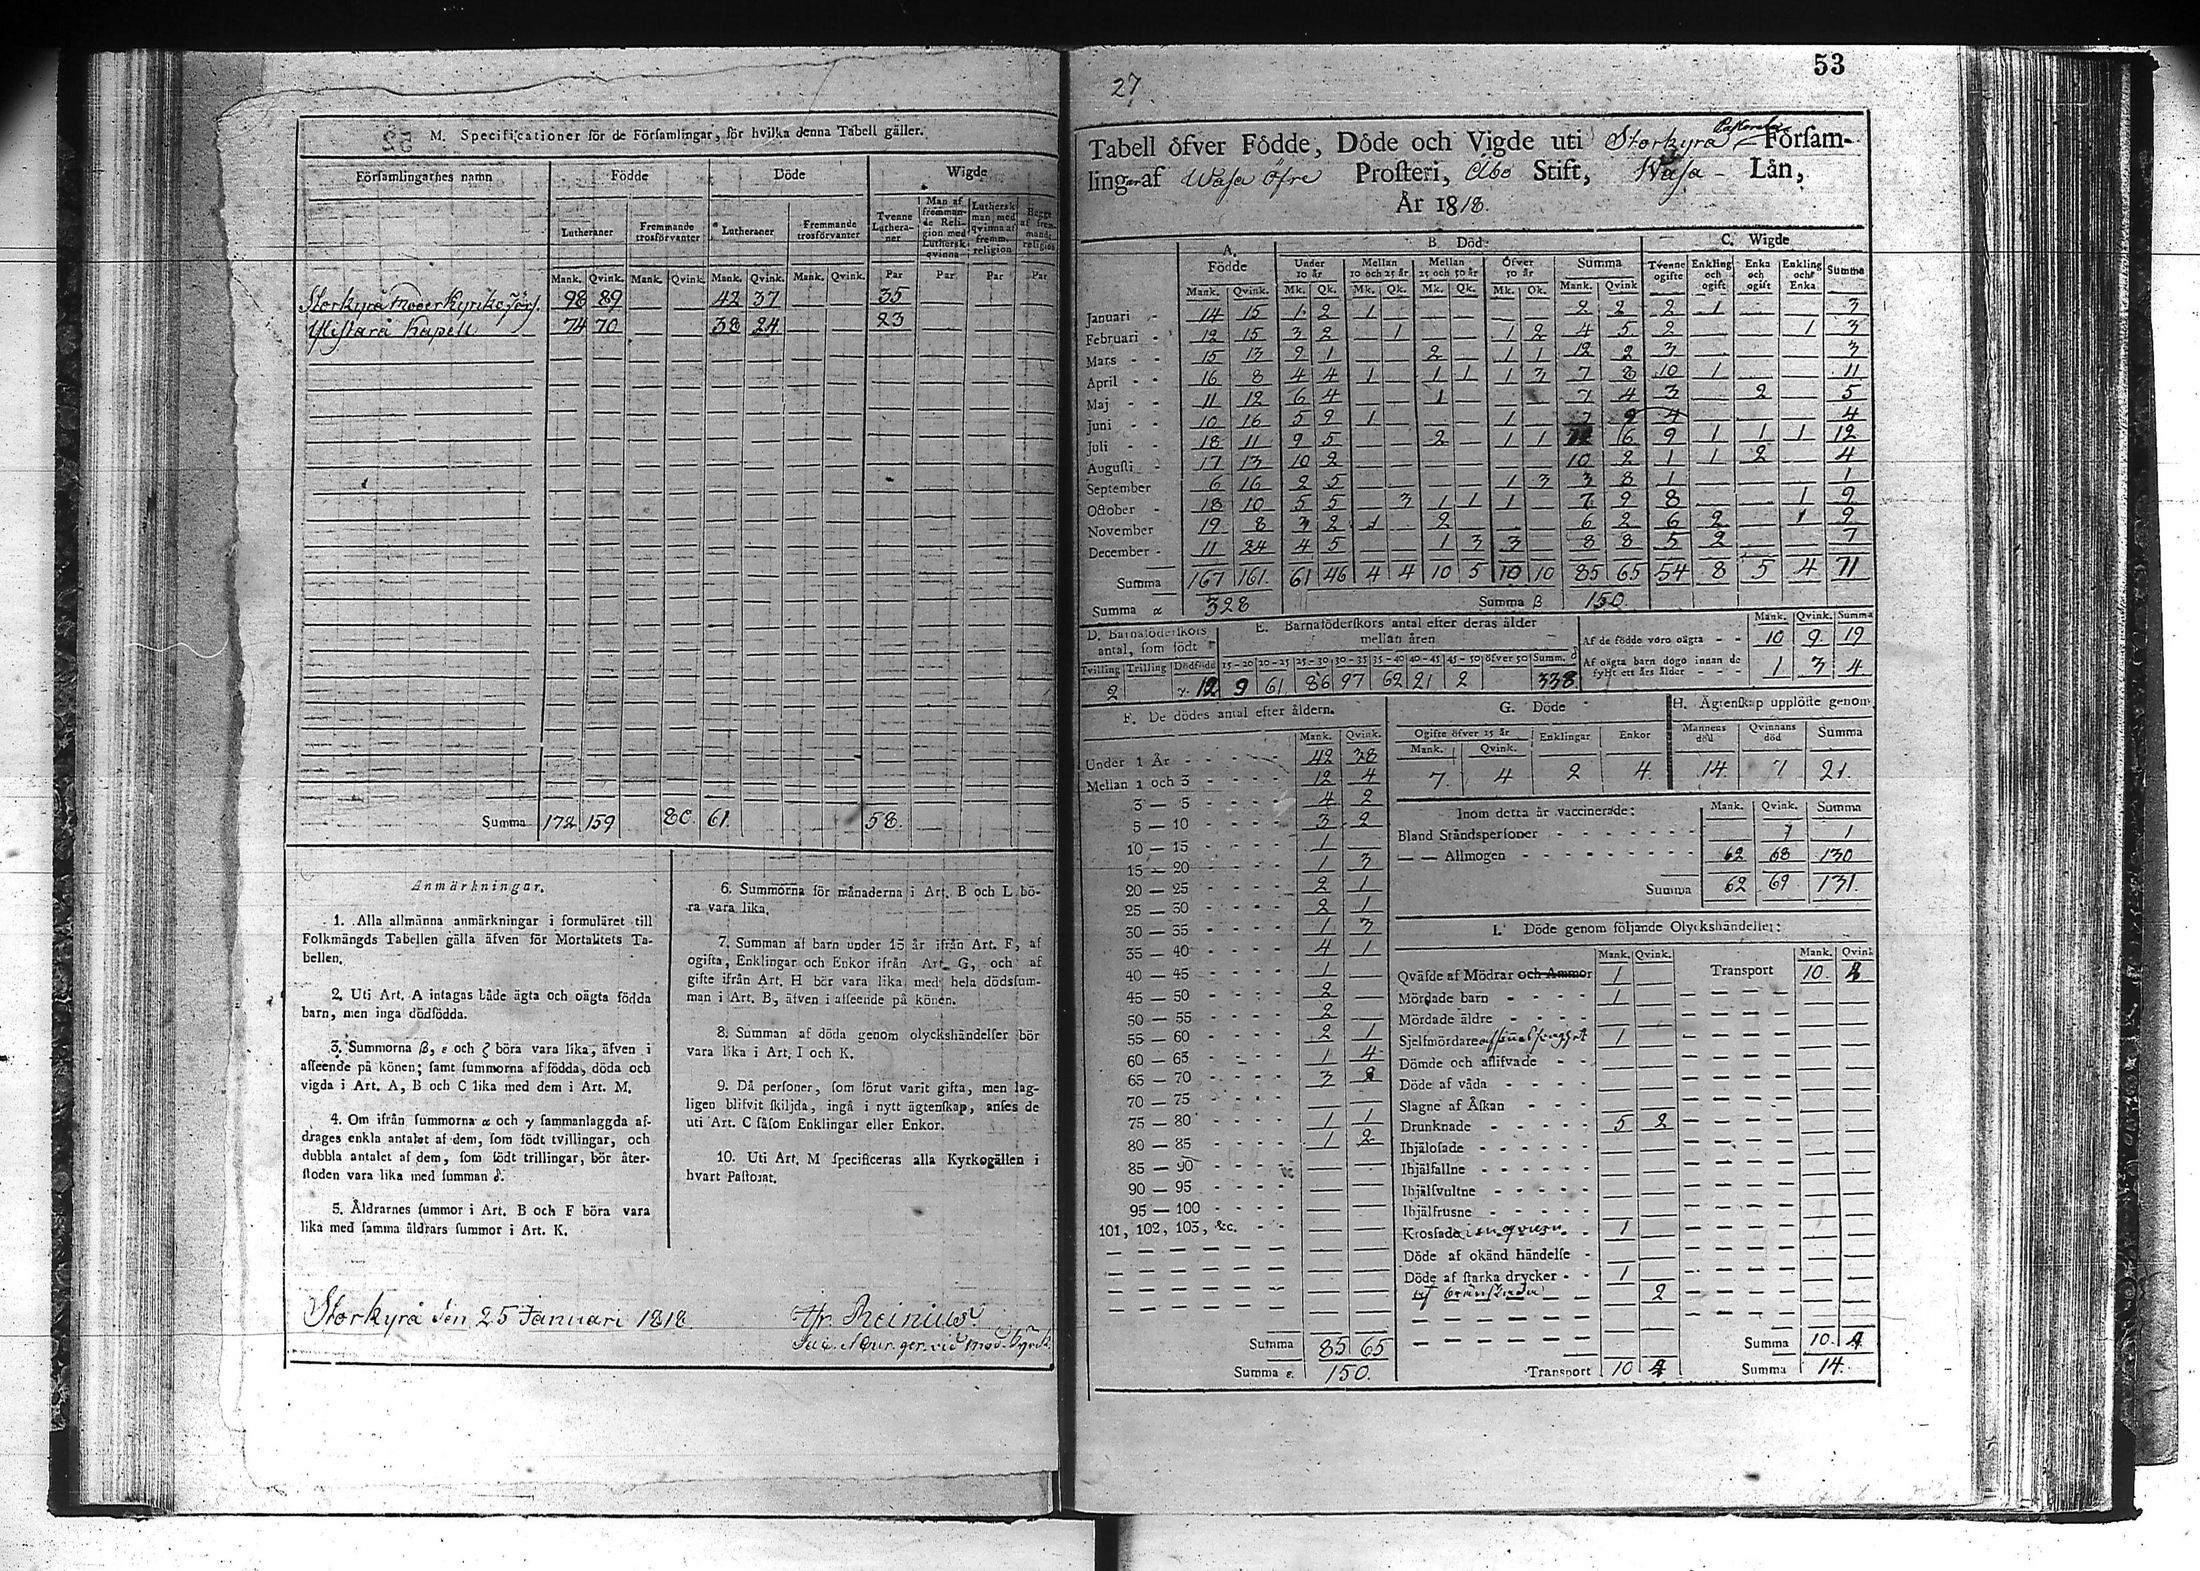 M. Specificationer för de Församlingar, för hvilka denna Tabell gäller.
Församlingarnes namn Födde Döde Wigde
Lutheraner Fremmande trosförvanter Lutheraner Fremmande trosförvanter Tvenne Lutheraner Man af fremmande Religion med Luthersk qvinna Luthersk man med qvinna af fremm. religion Begge af fremmande religion
Mank. Qvink. Mank. Qvink. Mank. Qvink. Mank. Qvink. Par Par Par Par
Storkyrå moderkyrko förs. 98 89 42 37 35
Ylistaro Kapell 74 70 38 24 23
Summa 172 159 80 61 58.
Anmärkningar.
1. Alla allmänna anmärkningar i formuläret till
Folkmängds Tabellen gälla äfven för Mortalitets Ta-
bellen.
2. Uti Art. A intagas både ägta och oägta födda
barn, men inga dödfödda.
3. Summorna β, ε och ζ böra vara lika, äfven i
afseende på könen; samt summorna af födda, döda och
vigda i Art. A, B och C lika med dem i Art. M.
4. Om ifrån summorna α och γ sammanlaggda af-
drages enkla antalet af dem, som födt tvillingar, och
dubbla antalet af dem, som födt trillingar, bör åter-
stoden vara lika med summan δ.
5. Åldrarnes summor i Art. B och F böra vara
lika med samma åldrars summor i Art. K.
6. Summorna för månaderna i Art. B och L bö-
ra vara lika.
7. Summan af barn under 15 år ifrån Art. F, af
ogifta, Enklingar och Enkor ifrån Art. G, och af
gifte ifrån Art. H bör vara lika med hela dödssum-
man i Art. B, äfven i afseende på könen.
8. Summan af döda genom olyckshändelser bör
vara lika i Art. I och K.
9. Då personer, som förut varit gifta, men lag-
ligen blifvit skiljda, ingå i nytt ägtenskap, anses de
uti Art. C såsom Enklingar eller Enkor.
10. Uti Art. M specificeras alla Kyrkogällen i
hvart Pastorat.
Storkyrå den 25 Januari 1818.
53
27
Tabell öfver Födde, Döde och Vigde uti Storkyrå Pastorat Försam-
lingar af Wasa öfre Prosteri, Åbo Stift, Wasa Län,
År 1818.
A. Födde B. Död: C. Wigde
Under 10 år Mellan 10 och 25 år Mellan 25 och 50 år Öfver 50 år Summa Tvenne ogifte Enkling och ogift Enka och ogift Enkling och Enka Summa
Mank. Qvink. Mk. Qk. Mk. Qk. Mk. Qk. Mk. Qk. Mank. Qvink
Januari 14 15 1 2 1 2 2 2 1 3
Februari 12 15 3 2 1 1 2 4 5 2 1 3
Mars 15 13 9 1 2 1 1 12 2 3 3
April 16 8 4 4 1 1 1 1 3 7 8 10 1 11
Maj 11 12 6 4 1 7 4 3 2 5
Juni 10 16 5 9 1 1 7 9 4 4
Juli 18 11 9 5 2 1 1 12 6 9 1 1 1 12
Augusti 17 13 10 2 10 2 1 1 2 4
September 6 16 2 5 1 3 3 8 1 1
October 18 10 5 5 3 1 1 1 7 9 8 1 9
November 19 8 3 2 1 2 6 2 6 2 1 9
December 11 24 4 5 1 3 3 8 8 5 2 7
Summa 167 161 61 46 4 4 10 5 10 10 85 65 54 8 5 4 71
Summa α 328 Summa β 150.
D. Barnaföderskors antal, som födt E. Barnaföderskors antal efter deras ålder mellan åren Mank. Qvink. Summa
Af de födde voro oägta 10 9 19
Tvilling Trilling Dödfödd 15-20 20-25 25-30 30-35 35-40 40-45 45-50 öfver 50 Summ. δ Af oägta barn dogo innan de fyllt ett års ålder 1 3 4
2 γ. 12 9 61 86 97 62 21 2 338
F. De dödes antal efter åldern.
Mank. Qvink.
Under 1 År 42 38
Mellan 1 och 3 12 4
3 — 5 4 2
5 — 10 3 2
10 — 15 1
15 — 20 1 3
20 — 25 2 1
25 — 30 2 1
30 — 35 1 3
35 — 40 4 1
40 — 45 1
45 — 50 2
50 — 55 2
55 — 60 2 1
60 — 65 1 4
65 — 70 3 2
70 — 75
75 — 80 1 1
80 — 85 1 2
85 — 90
90 — 95
95 — 100
101, 102, 103, &c.
Summa 85 65
Summa ε. 150.
G. Döde H. Ägtenskap upplöste genom
Ogifte öfver 15 år Enklingar Enkor Mannens död Qvinnans död Summa
Mank. Qvink.
7. 4 2 4. 14. 7 21.
Inom detta år vaccinerade: Mank. Qvink. Summa
Bland Ståndspersoner 1 1
— — Allmogen 62 68 130
Summa 62 69 131.
I. Döde genom följande Olyckshändelser:
Mank. Qvink. Mank. Qvink
Qväfde af Mödrar och Ammor 1 Transport 10. 4
Mördade barn 1
Mördade äldre
Sjelfmördare 1
Dömde och aflifvade
Döde af våda
Slagne af Åskan
Drunknade 5 2
Ihjälosade
Ihjälfallne
Ihjälsvultne
Ihjälfrusne
Krossade i en qvarn 1
Döde af okänd händelse
Döde af starka drycker 1
af brännskada 2
Summa 10. 4
Transport 10 4 Summa 14.